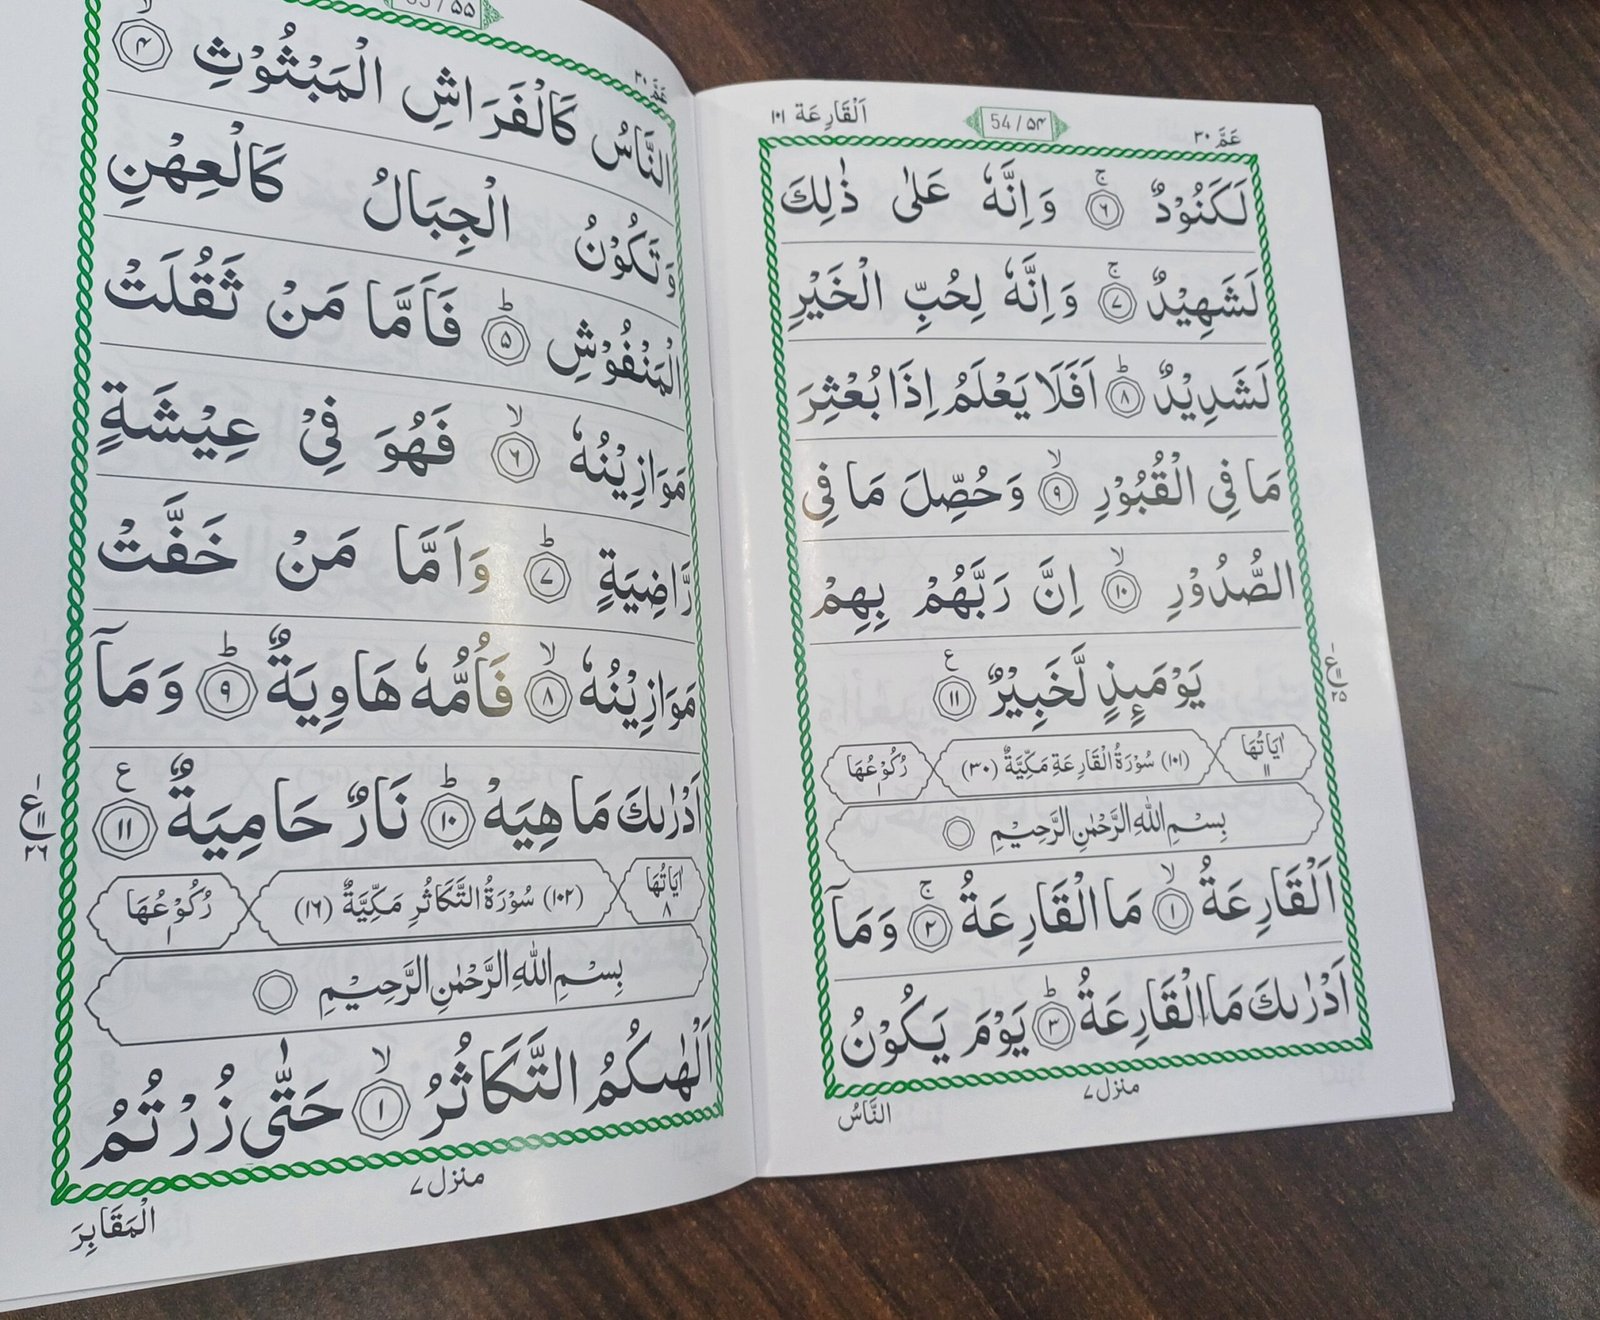 اَلْقَارِعَة ١٠١
54 / ۵۴
عَمَّ ٣٠
لَكَنُوْدٌ ۚ﴿۶﴾ وَ اِنَّهٗ عَلٰى ذٰلِكَ
لَشَهِيْدٌ ۚ﴿۷﴾ وَ اِنَّهٗ لِحُبِّ الْخَيْرِ
لَشَدِيْدٌ ؕ﴿۸﴾ اَفَلَا يَعْلَمُ اِذَا بُعْثِرَ
مَا فِى الْقُبُوْرِ ۙ﴿۹﴾ وَ حُصِّلَ مَا فِى
الصُّدُوْرِ ۙ﴿۱۰﴾ اِنَّ رَبَّهُمْ بِهِمْ
يَوْمَىِٕذٍ لَّخَبِيْرٌ ﴿۱۱﴾ ع
١ ع ١١ ٢٥
اٰيَاتُهَا ١١ (١٠١) سُوْرَةُ الْقَارِعَةِ مَكِّيَّةٌ (٣٠) رُكُوْعُهَا ١
بِسْمِ اللّٰهِ الرَّحْمٰنِ الرَّحِيْمِ
اَلْقَارِعَةُ ۙ﴿۱﴾ مَا الْقَارِعَةُ ۚ﴿۲﴾ وَ مَاۤ
اَدْرٰىكَ مَا الْقَارِعَةُ ؕ﴿۳﴾ يَوْمَ يَكُوْنُ
منزل ٧
النَّاسُ
۵۵
عَمَّ ٣٠
النَّاسُ كَالْفَرَاشِ الْمَبْثُوْثِ ۙ﴿۴﴾
وَ تَكُوْنُ الْجِبَالُ كَالْعِهْنِ
الْمَنْفُوْشِ ؕ﴿۵﴾ فَاَمَّا مَنْ ثَقُلَتْ
مَوَازِيْنُهٗ ۙ﴿۶﴾ فَهُوَ فِىْ عِيْشَةٍ
رَّاضِيَةٍ ؕ﴿۷﴾ وَ اَمَّا مَنْ خَفَّتْ
مَوَازِيْنُهٗ ۙ﴿۸﴾ فَاُمُّهٗ هَاوِيَةٌ ؕ﴿۹﴾ وَ مَاۤ
اَدْرٰىكَ مَا هِيَهْ ؕ﴿۱۰﴾ نَارٌ حَامِيَةٌ ﴿۱۱﴾ ع
١ ع ١١ ٢٦
اٰيَاتُهَا ٨ (١٠٢) سُوْرَةُ التَّكَاثُرِ مَكِّيَّةٌ (١٦) رُكُوْعُهَا ١
بِسْمِ اللّٰهِ الرَّحْمٰنِ الرَّحِيْمِ
اَلْهٰىكُمُ التَّكَاثُرُ ۙ﴿۱﴾ حَتّٰى زُرْتُمُ
منزل ٧
الْمَقَابِرَ